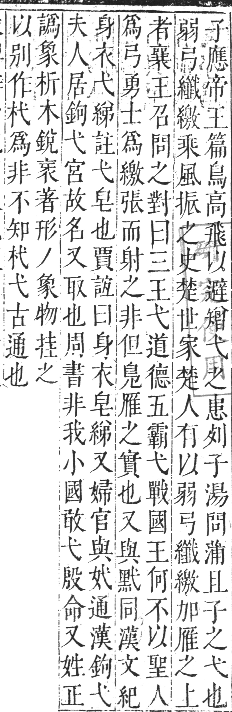 子應帝王篇鳥高飛以避矰弋之患列子湯問蒲且子之弋也
弱弓纖繳乘風振之史楚世家楚人有以弱弓纖繳加雁之上
者襄王召問之對曰三王弋道德五霸弋戰國王何不以聖人
爲弓勇士爲繳張而射之非但鳧雁之實也又與黓同漢文紀
身衣弋綈註弋皂也賈誼曰身衣皂綈又婦官與妷通漢鉤弋
夫人居鉤弋宮故名又取也周書非我小國敢弋殷命又姓正
譌象析木銳衺著形丿象物挂之
以別作杙爲非不知杙弋古通也